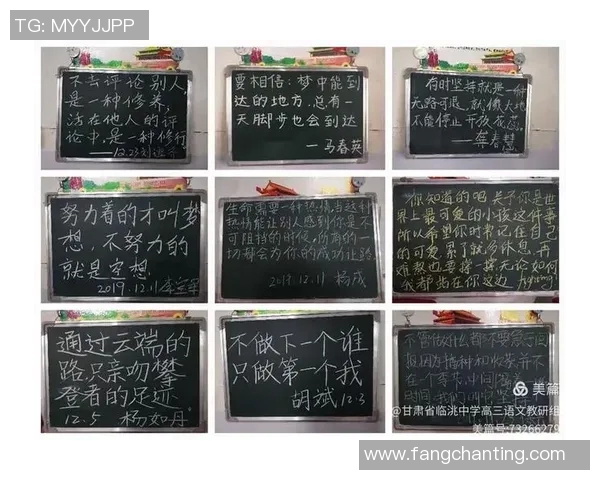 TG: MYYJJPP
不去评论别人
是一种修养,
活在他人的评
论中.是一种修行
——12.23
要相信:梦中能到
达的地方.总有一
天脚步也会到达
—马春英
有时坚持就是一种
无路可退,就像大地
不能停止开放花蕊。
——龚春慧
努力着的才叫梦
想,不努力的
就是空想
2019.12.11
生命需要一种热情,当这种
热情能让别人感到你是不
可阻挡的时候,
一切都会为你的成功让路
2019.12.11 杨成
你知道的吗 关于你是世
界上最可爱的小孩这件事
所以希望你时常记在自己
的可爱.累了就多休息.再
难熬也要撑一撑无论如何
我都站在你这边
通过云端的
路,只亲吻攀
登者的足迹
12.5 杨如丹
不做下一个谁
只做第一个我
胡斌 12.3
不管做什么都不要急于回
报,因为播种和收获并不
在一个季节,中间
美篇
@甘肃省临洮中学高三语文教研组
美篇号:73266279
www.fangchanting.com